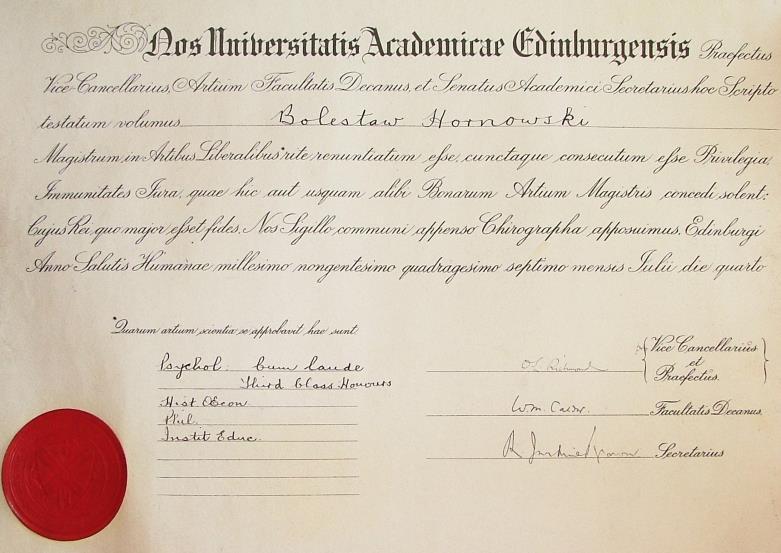 Nos Universitatis Academicae Edinburgensis Praefectus
Vice-Cancellarius, Artium Facultatis Decanus, et Senatus Academici Secretarius hoc Scripto
testatum volumus Bolesław Hornowski
Magistrum in Artibus Liberalibus* rite renuntiatum esse, cunctaque consecutum esse Privilegia,
Immunitates Jura, quae hic aut usquam alibi Bonarum Artium Magistris concedi solent;
Cujus Rei, quo major esset fides, Nos Sigillo communi appenso Chirographa apposuimus. Edinburgi
Anno Salutis Humanae millesimo nongentesimo quadragesimo septimo mensis Julii die quarto
*Quarum artium scientia se approbavit hae sunt
Psychol: Cum laude
Third Class Honours
Hist Œcon
Phil.
Instit Educ.
O L Richmond
Vice Cancellarius
et
Praefectus.
Wm. Calder.
Facultatis Decanus.
Secretarius